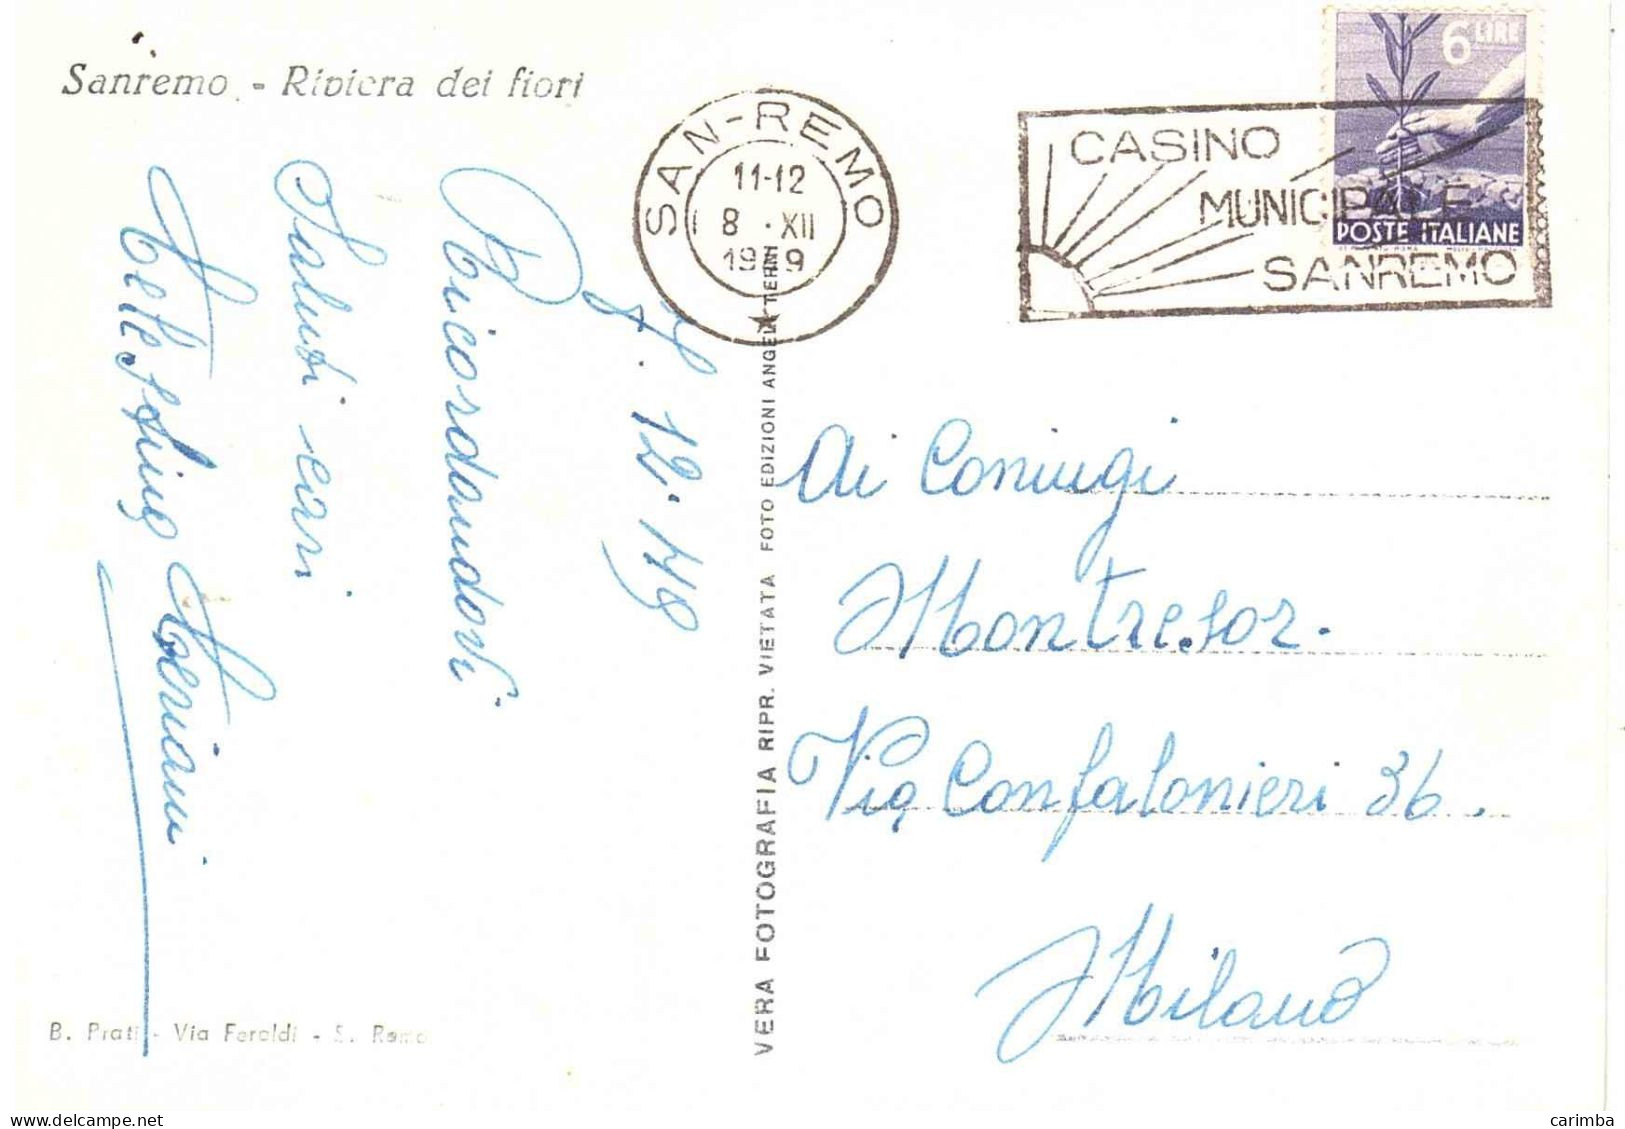 Sanremo - Riviera dei fiori
SAN-REMO
11-12
8 · XII
CASINO
MUNICIPALE
SANREMO
6 LIRE
POSTE ITALIANE
12. 48
Ricordandovi
Saluti cari
Ai Coniugi
Montresor.
Via Confalonieri 36.
Milano
VERA FOTOGRAFIA RIPR. VIETATA FOTO EDIZIONI ANGELI TERNI
B. Prati - Via Feraldi - S. Remo
carimba